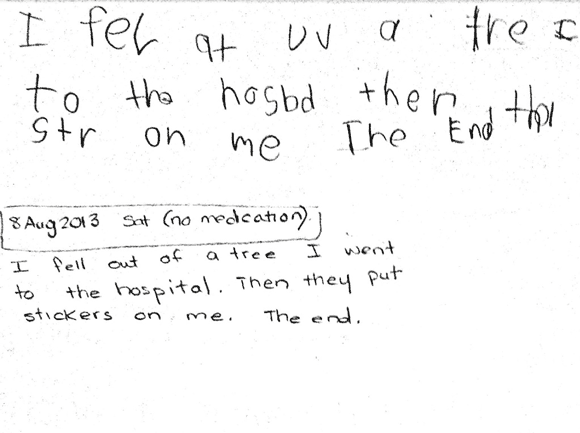 I fel at uv a tre I
to the hosbd then thpl
Str on me The End
8 Aug 2013 Sat (no medication).
I fell out of a tree I went
to the hospital. Then they put
stickers on me. The end.